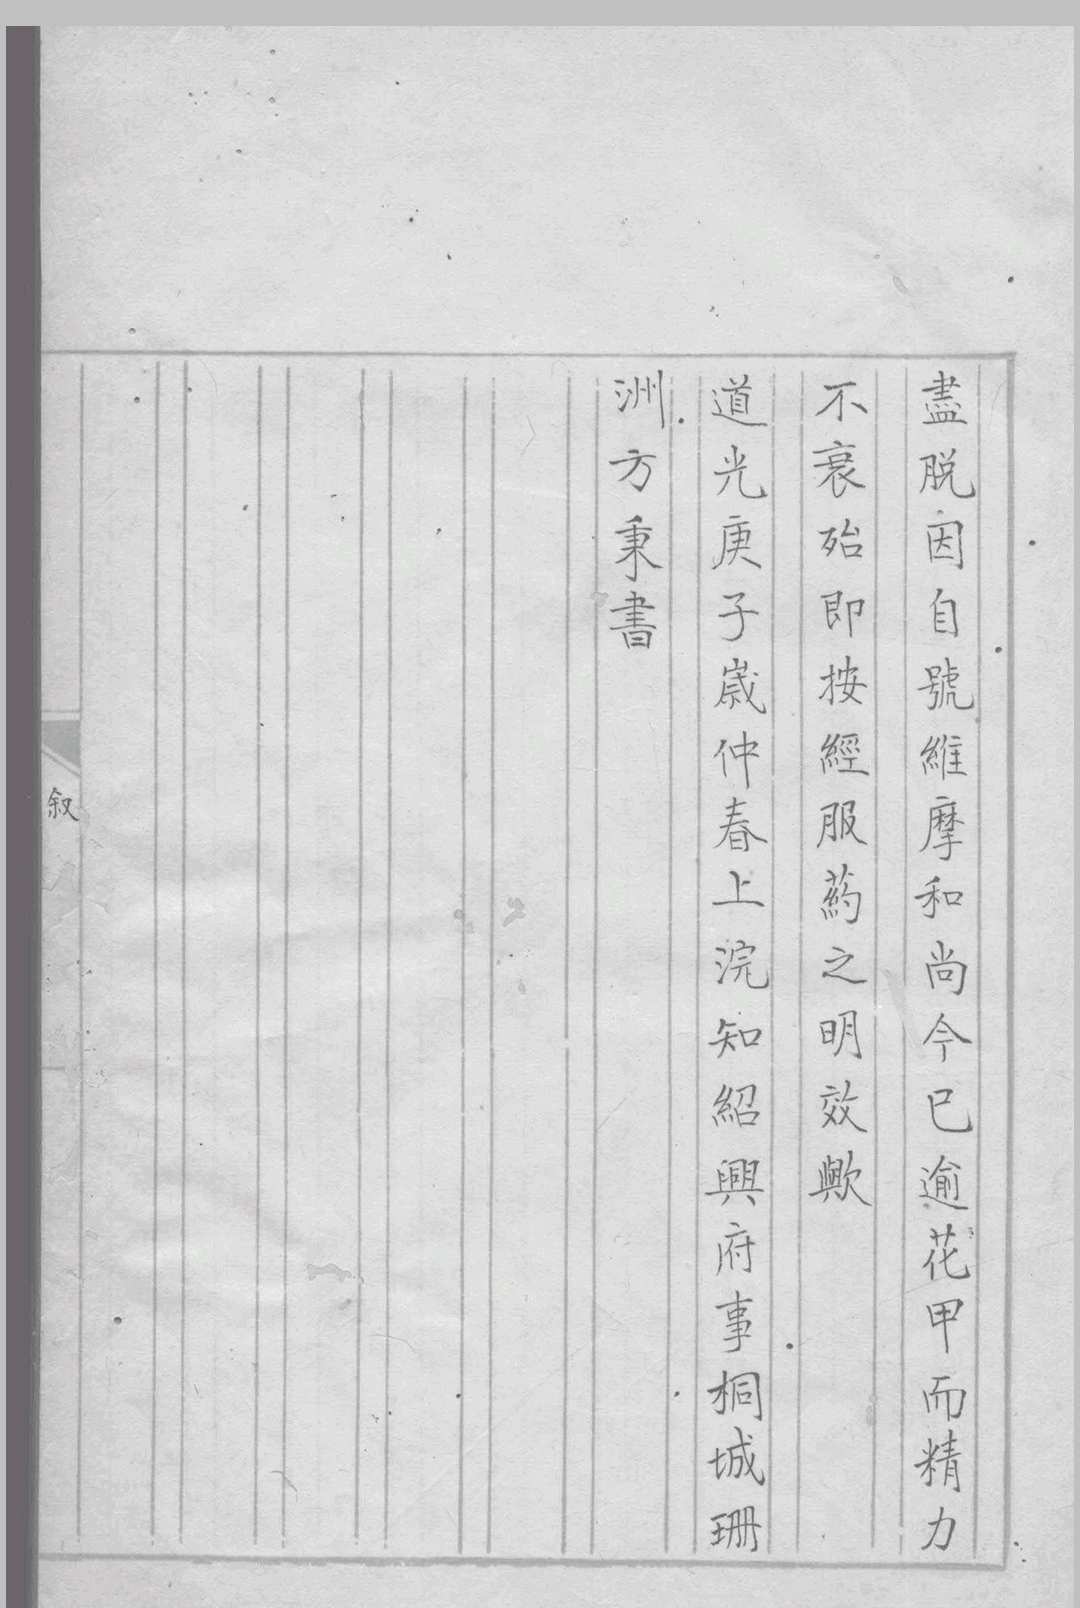 盡脱因自號維摩和尚今已逾花甲而精力
不衰殆即按經服葯之明效歟
道光庚子嵗仲春上浣知紹興府事桐城珊
洲方秉書
叙